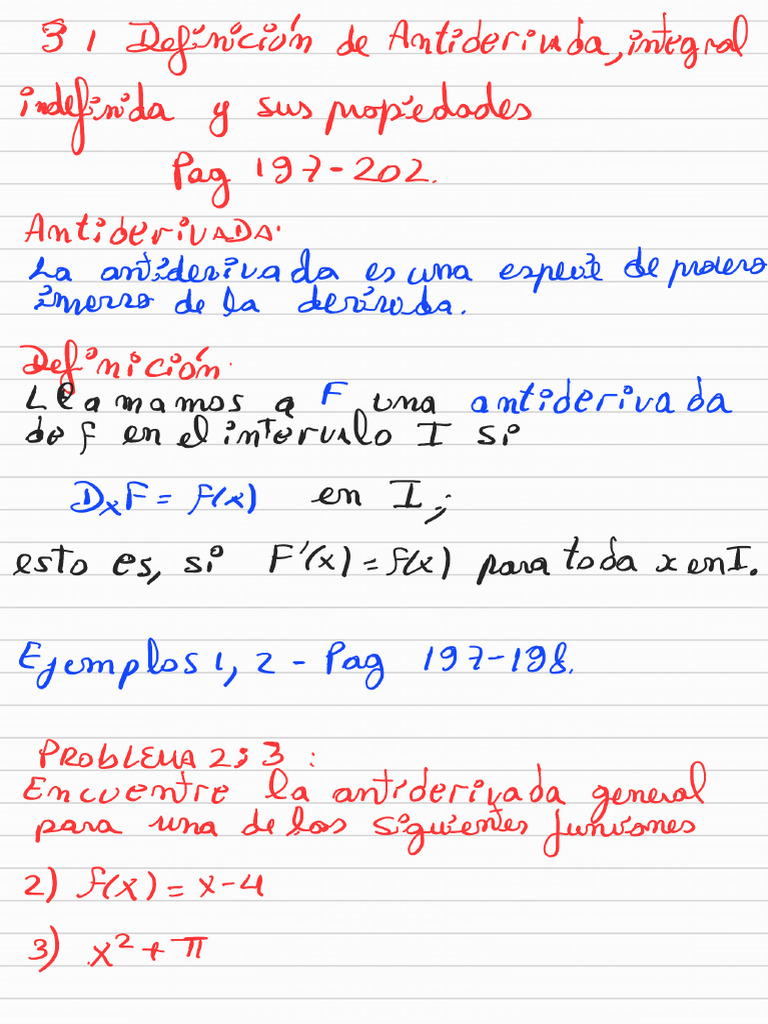 3 1 Definición de Antiderivada, integral
indefinida y sus propiedades
Pag 197-202.
Antiderivada.
La antiderivada es una especie de proceso
inverso de la derivada.
Definición.
Llamamos a F una antiderivada
de f en el intervalo I si
DₓF = f(x) en I;
esto es, si F'(x) = f(x) para toda x en I.
Ejemplos 1, 2 - Pag 197-198.
PROBLEMA 2; 3 :
Encuentre la antiderivada general
para una de los siguientes funciones
2) f(x) = x-4
3) x² + π